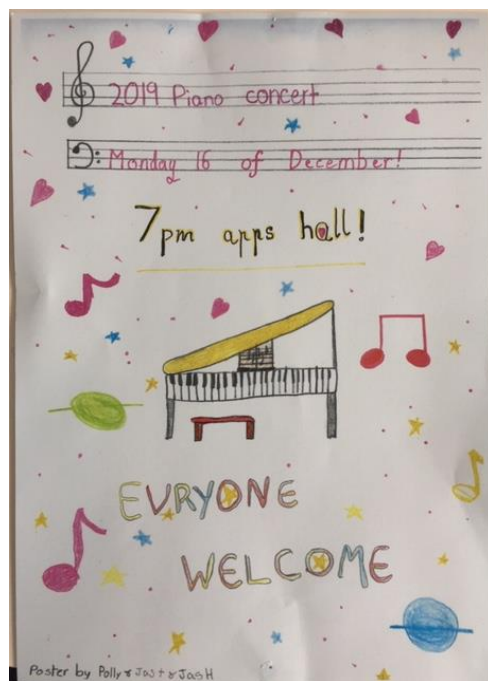 2019 Piano concert
Monday 16 of December!
7pm apps hall!
EVRYONE
WELCOME
Poster by Polly & Jas t & Jas H